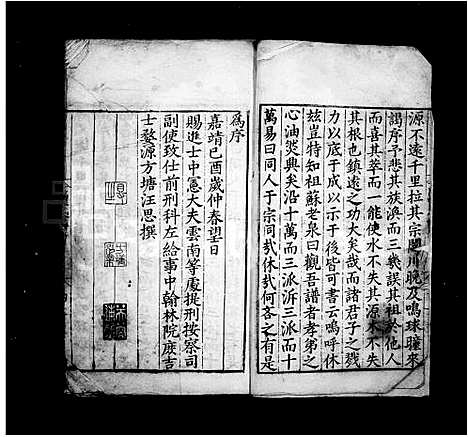 源不遠千里拉其宗閶川晚及鳴球瞳來
謁序予悲其族渙而三幾誤其祖於他人
而喜其萃而一能使水不失其源木不失
其根也鎮遠之功大矣哉而諸君子之戮
力以底于成以示于後皆可書云嗚呼休
玆豈特知祖蘇老泉曰觀吾譜者孝弟之
心油然興矣沿十萬而三派泝三派而十
萬易曰同人于宗同哉休哉何吝之有是
為序
嘉靖己酉歲仲春望日
賜進士中憲大夫雲南等處提刑按察司
副使致仕前刑科左給事中翰林院庶吉
士婺源方塘汪思撰